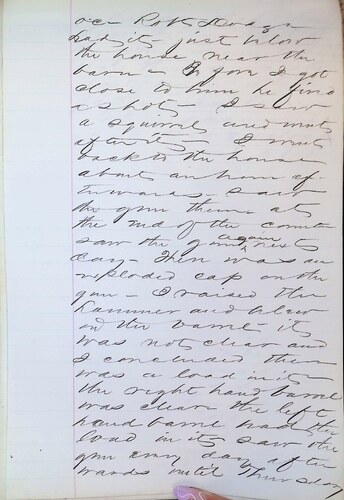 had it just below
the house near the
barn - before I got
close to him he fired
a shot - I saw
a squirrel and went
after it - I went
back to the house
about an hour af
terwards - saw
the gun there at
the end of the counter
saw the gun again next
day - there was an
exploded cap on the
gun - I raised the
hammer and blew
in the barrel - it
was not clear and
I concluded there
was a load in it
the right hand barrel
was clear the left
hand barrel had the
load in it saw the
gun every day after
wards until Thursday